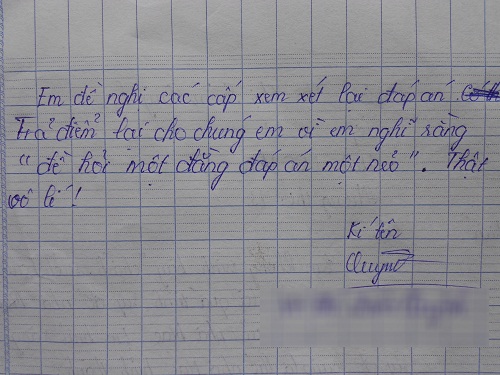 Em đề nghị các cấp xem xét lại đáp án.
Trả điểm lại cho chúng em vì em nghĩ rằng
"đề hỏi một đằng đáp án một nẻo". Thật
vô lí!
Kí tên
Quỳnh